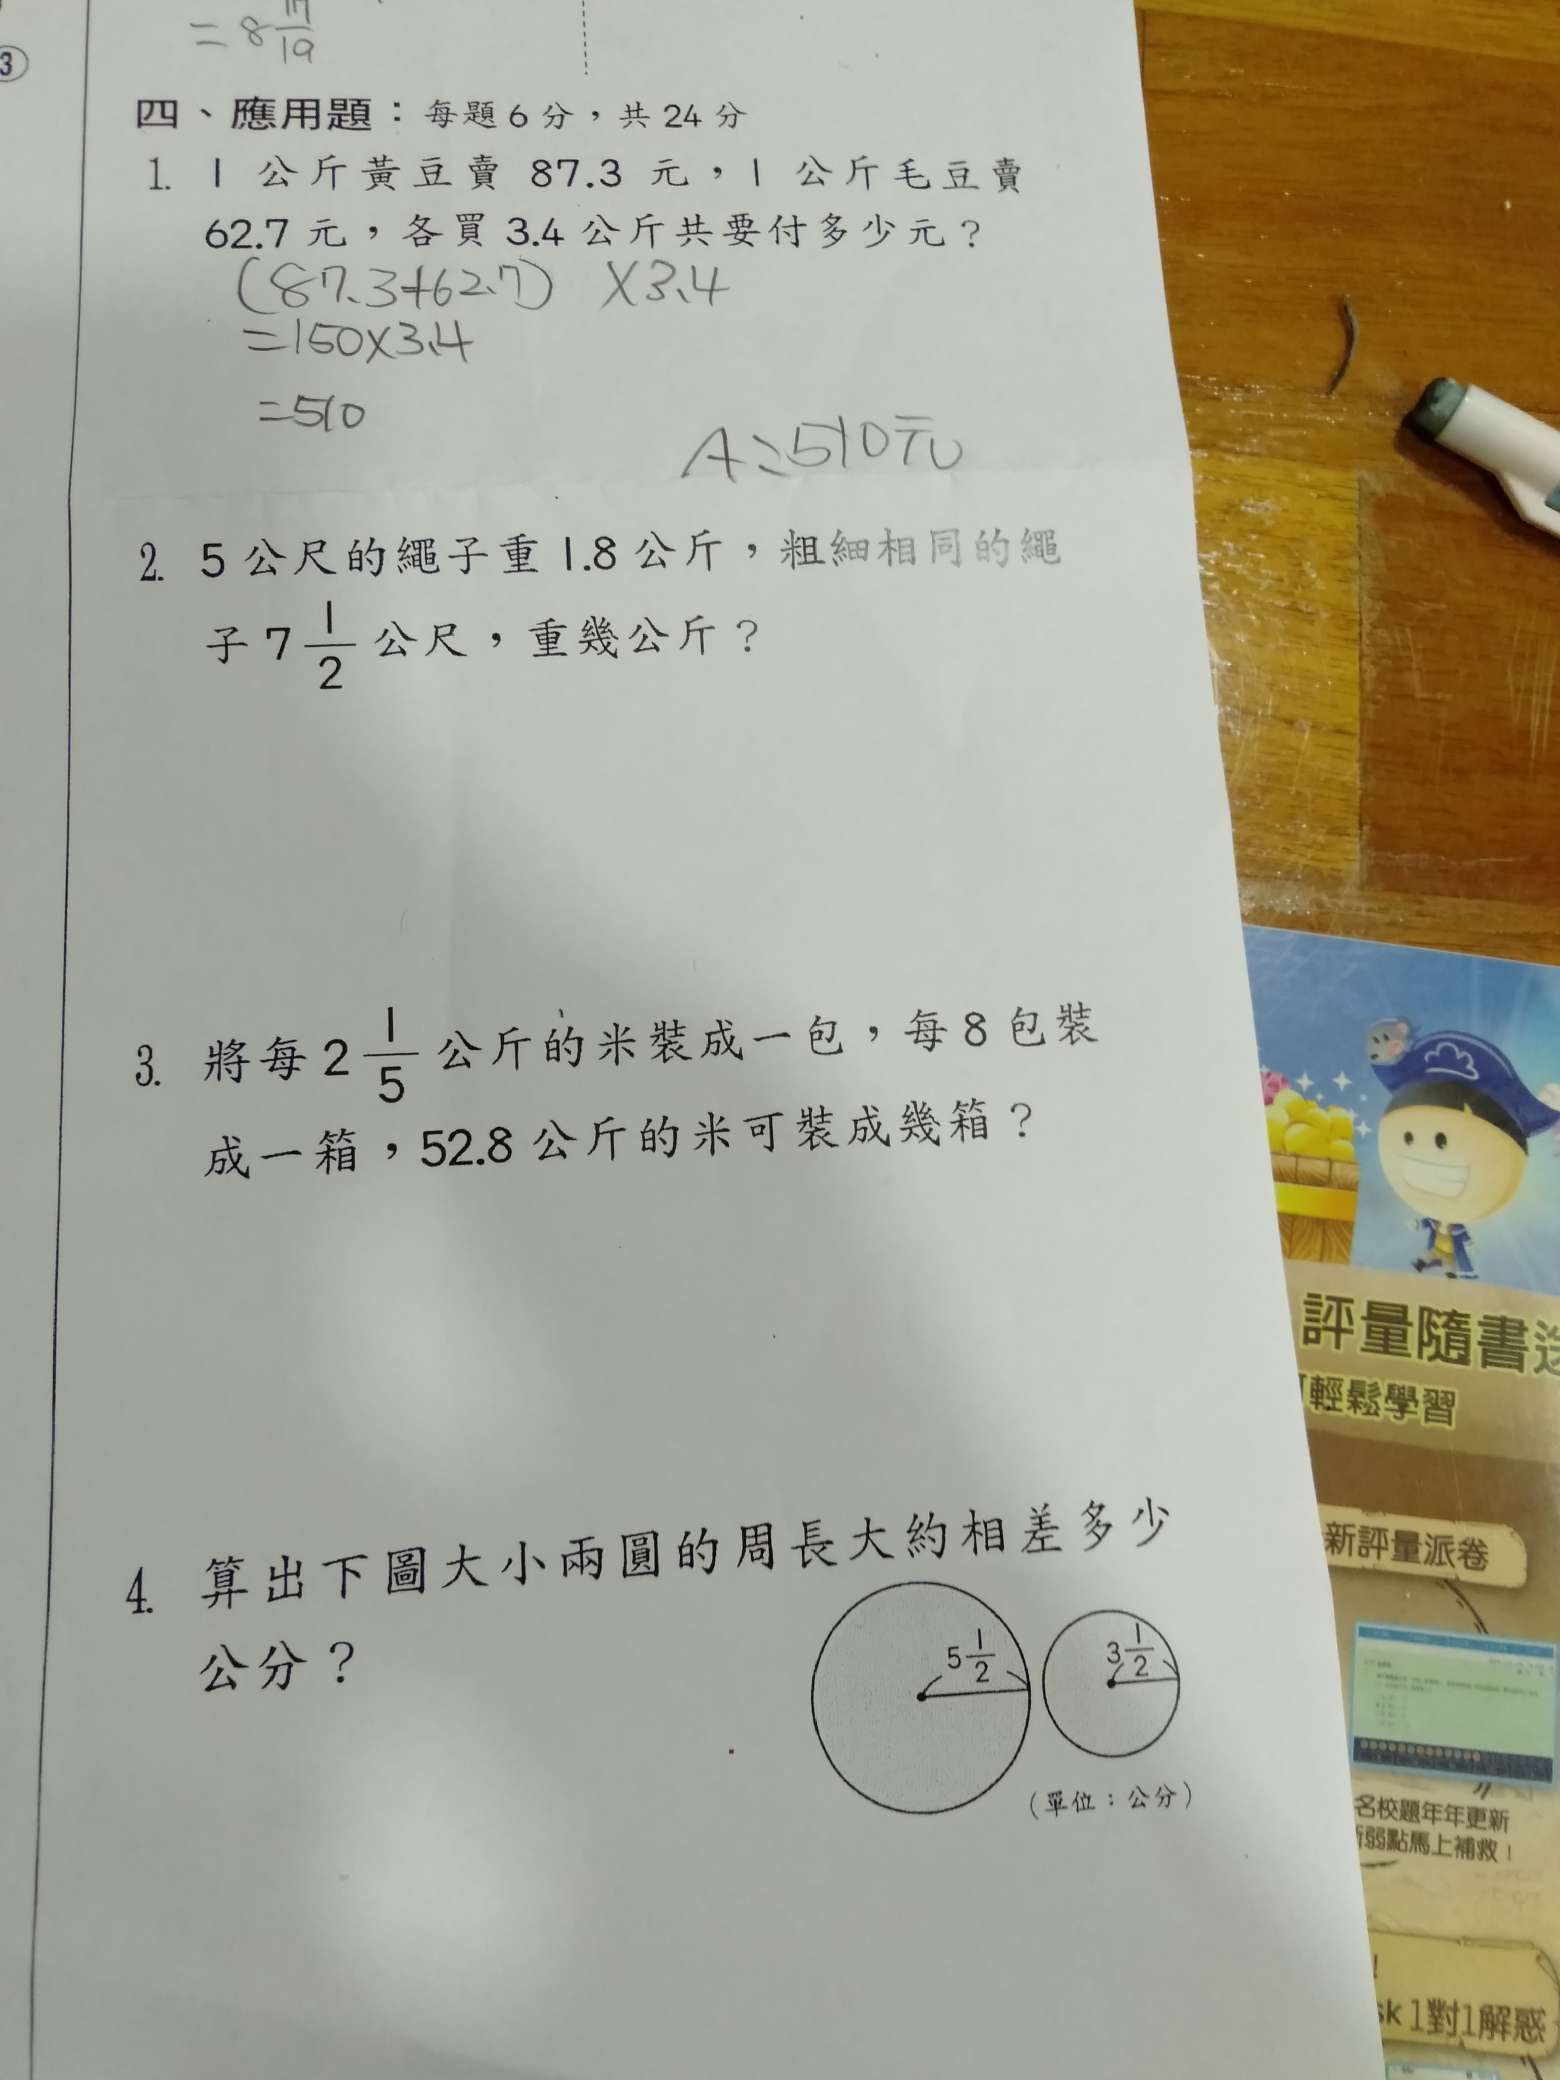 = 8 17/19
3
四、應用題：每題6分，共24分
1. 1公斤黃豆賣 87.3 元，1公斤毛豆賣
62.7元，各買3.4公斤共要付多少元？
(87.3+62.7) ×3.4
=150×3.4
=510
A:510元
2. 5公尺的繩子重1.8公斤，粗細相同的繩
子7 1/2 公尺，重幾公斤？
3. 將每2 1/5 公斤的米裝成一包，每8包裝
成一箱，52.8公斤的米可裝成幾箱？
4. 算出下圖大小兩圓的周長大約相差多少
公分？
5 1/2
3 1/2
(單位：公分)
評量隨書
輕鬆學習
新評量派卷
名校題年年更新
弱點馬上補救！
sk 1對1解惑